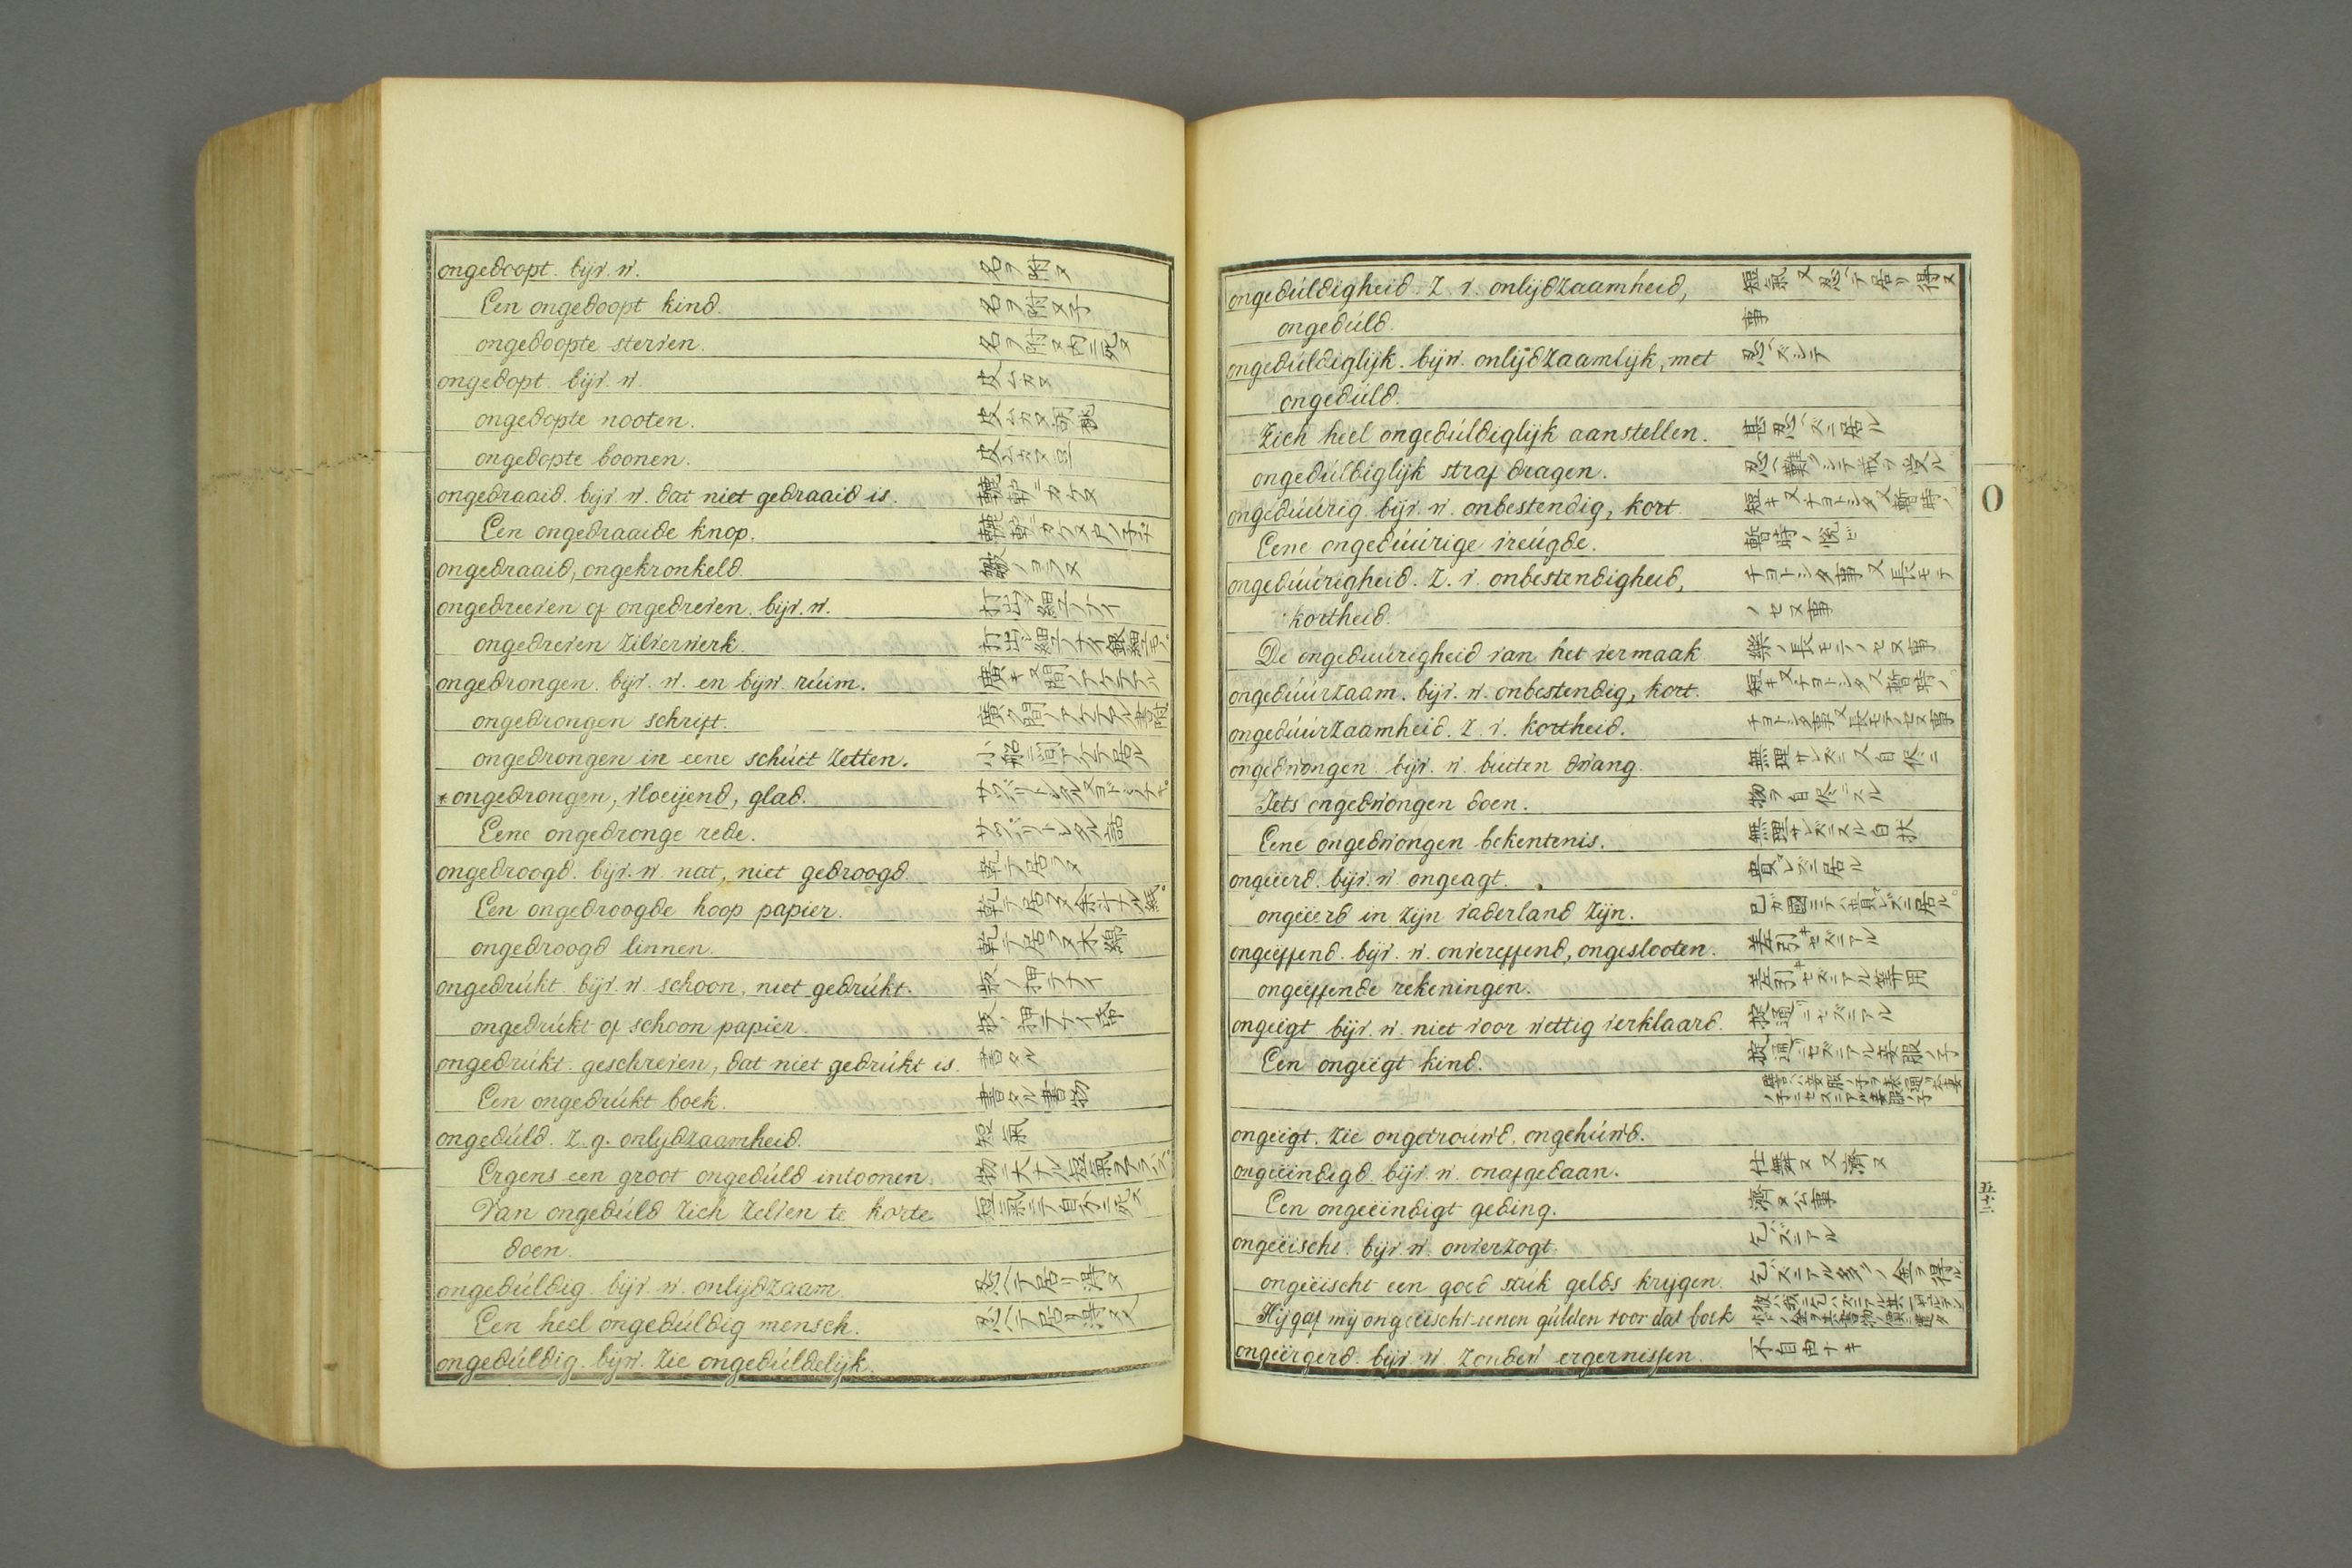 ongedoopt. bijv. w. 名ヲ附ヌ
Een ongedoopt kind. 名ヲ附ヌ子
ongedoopte sterven. 名ヲ附ヌ内ニ死ヌ
ongedopt. bijv. w. 皮ムカヌ
ongedopte nooten. 皮ムカヌ胡桃
ongedopte boonen. 皮ムカヌ豆
ongedraaid. bijv. w. dat niet gedraaid is. 轆轤ニカケヌ
Een ongedraaide knop.
ongedraaid, ongekronkeld.
ongedreeven of ongedreven. bijv. w. 打出シ細工ノナイ
ongedreven zilverwerk. 打出シ細工ノナイ銀細工
ongedrongen. bijv. w. en bijw. rúim.
ongedrongen schrift.
ongedrongen in eene schúit zetten.
*ongedrongen, vloeijend, glad.
Eene ongedronge rede.
ongedroogd. bijv. w. nat, niet gedroogd 乾テ居ラヌ
Een ongedroogde hoop papier.
ongedroogd linnen. 乾テ居ラヌ木綿
ongedrúkt. bijv. w. schoon, niet gedrúkt. 板ノ押テナイ
ongedrúkt of schoon papier. 板ノ押テナイ帋
ongedrúkt. geschreven, dat niet gedrúkt is. 書タル
Een ongedrúkt boek. 書タル書物
ongedúld. z. g. onlijdzaamheid. 短氣
Ergens een groot ongedúld intoonen.
Van ongedúld zich zelven te korte 短氣ニテ自分ニ死ヌ
doen.
ongedúldig. bijv. w. onlijdzaam. 忍ヘテ居リ得ヌ
Een heel ongedúldig mensch.
ongedúldig. bijw. zie ongedúldelijk.
ongedúldigheid. z. v. onlijdzaamheid, 短氣又忍ヘテ居リ得ヌ
ongedúld. 事
ongedúldiglijk. bijw. onlijdzaamlijk, met 忍ヘズシテ
ongedúld.
Zich heel ongedúldiglijk aanstellen. 甚忍ヘズニ居ル
ongedúldiglijk straf dragen.
ongedúúrig. bijv. w. onbestendig, kort. 短キ又チヨトシタ又暫時ノ
Eene ongedúúrige vreúgde. 暫時ノ悦ビ
ongedúúrigheid. z. v. onbestendigheid, チヨトシタ事又長モテ
kortheid. ノセヌ事
De ongedúúrigheid van het vermaak 樂ノ長モテノセヌ事
ongedúúrzaam. bijv. w. onbestendig, kort. 短キ又チヨトシタ又暫時ノ
ongedúúrzaamheid. z. v. kortheid. チヨトシタ事又長モテノセヌ事
ongedwongen. bijv. w. buiten dwang.
Iets ongedwongen doen.
Eene ongedwongen bekentenis. 無理サレズニスル白状
ongeëerd. bijv. w. ongeagt. 貴バレズニ居ル
ongeëerd in zijn vaderland zijn.
ongeëffend. bijv. w. onvereffend, ongeslooten. 差引キセズニアル
ongeëffende rekeningen. 差引キセズニアル筭用
ongeëgt. bijv. w. niet voor wettig verklaard.
Een ongeëgt kind.
ongeëgt. zie ongetrouwd, ongehúwd.
ongeëindigd. bijv. w. onafgedaan. 仕舞ヌ又濟ヌ
Een ongeëindigt geding. 濟ヌ公事
ongeëischt. bijv. w. onverzogt. 乞ハズニアル
ongeëischt een goed stúk gelds krijgen.
Hij gaf mij ongeëischt eenen gúlden voor dat boek
ongeërgerd. bijv. w. zonder ergernissen. 不自由ナキ
O